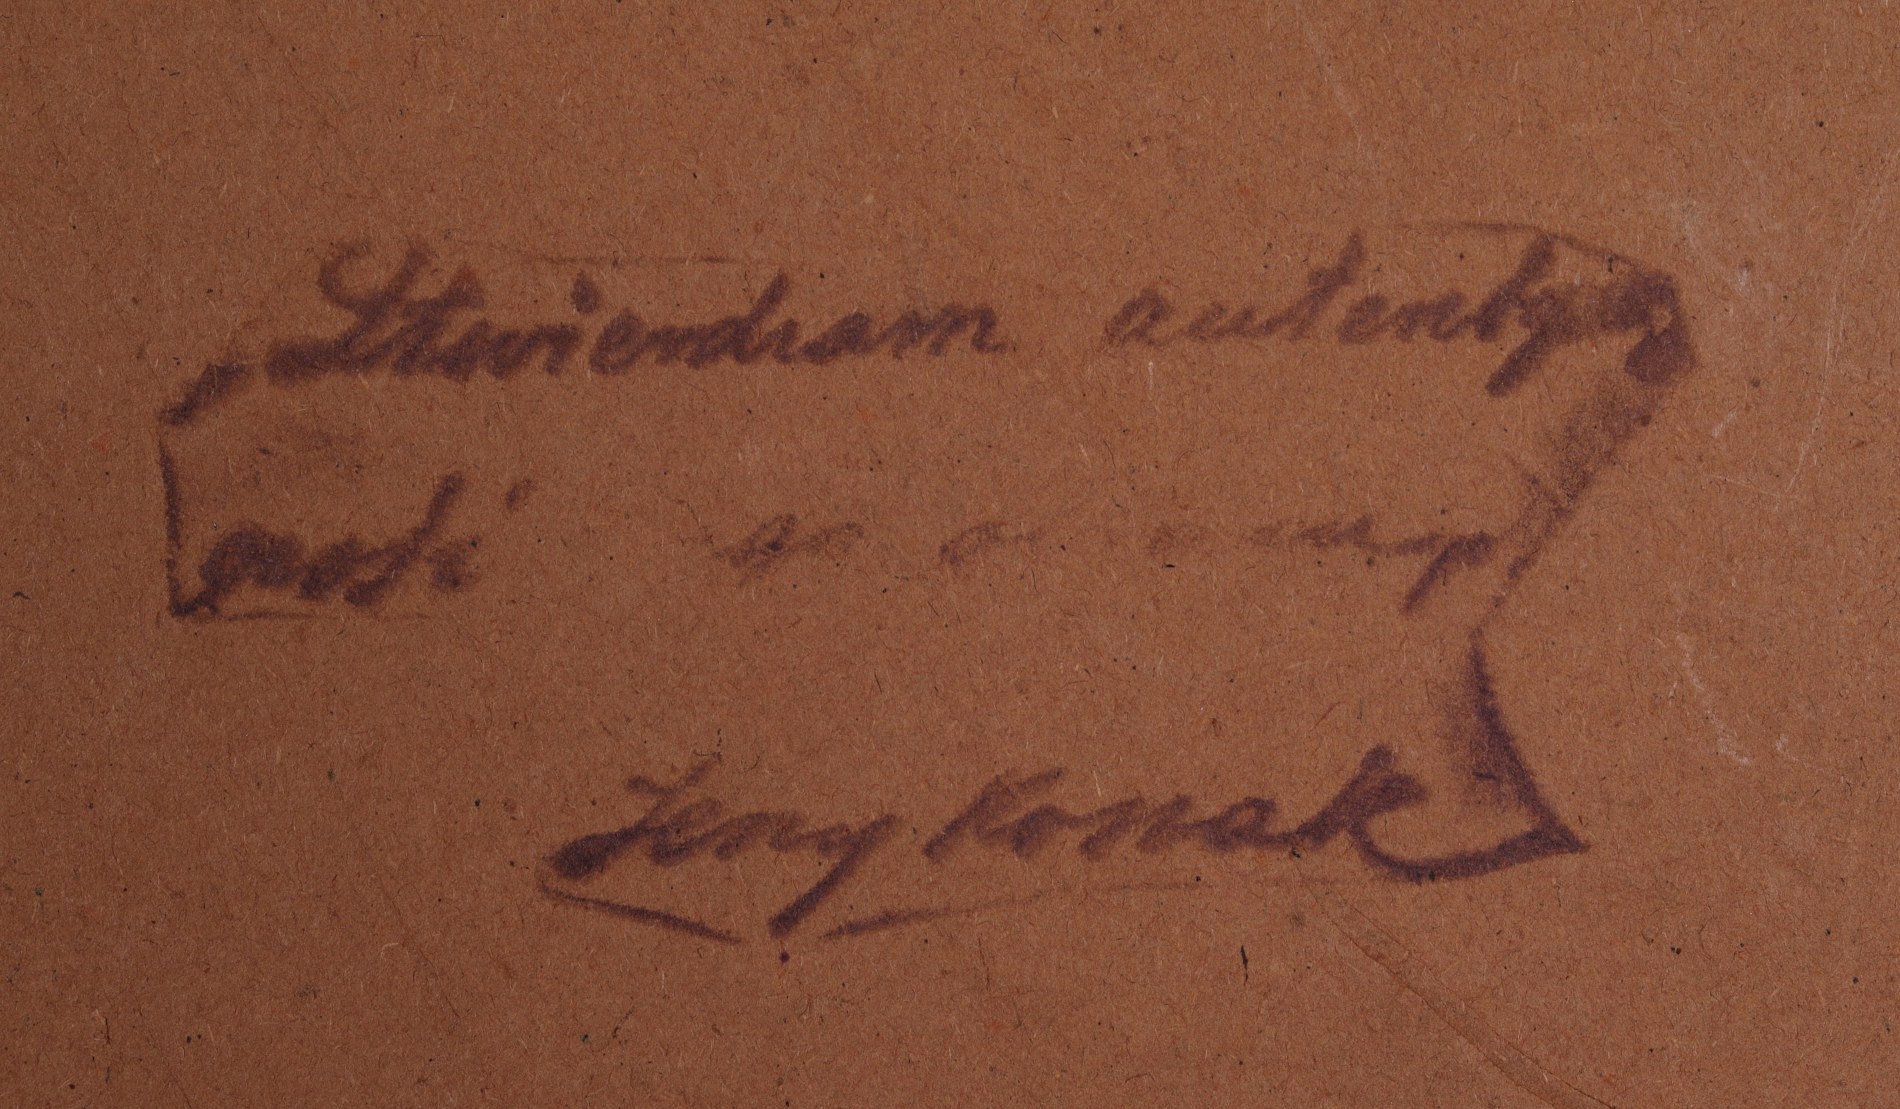 Stwierdzam autentycz
ność
Jerzy Kossak